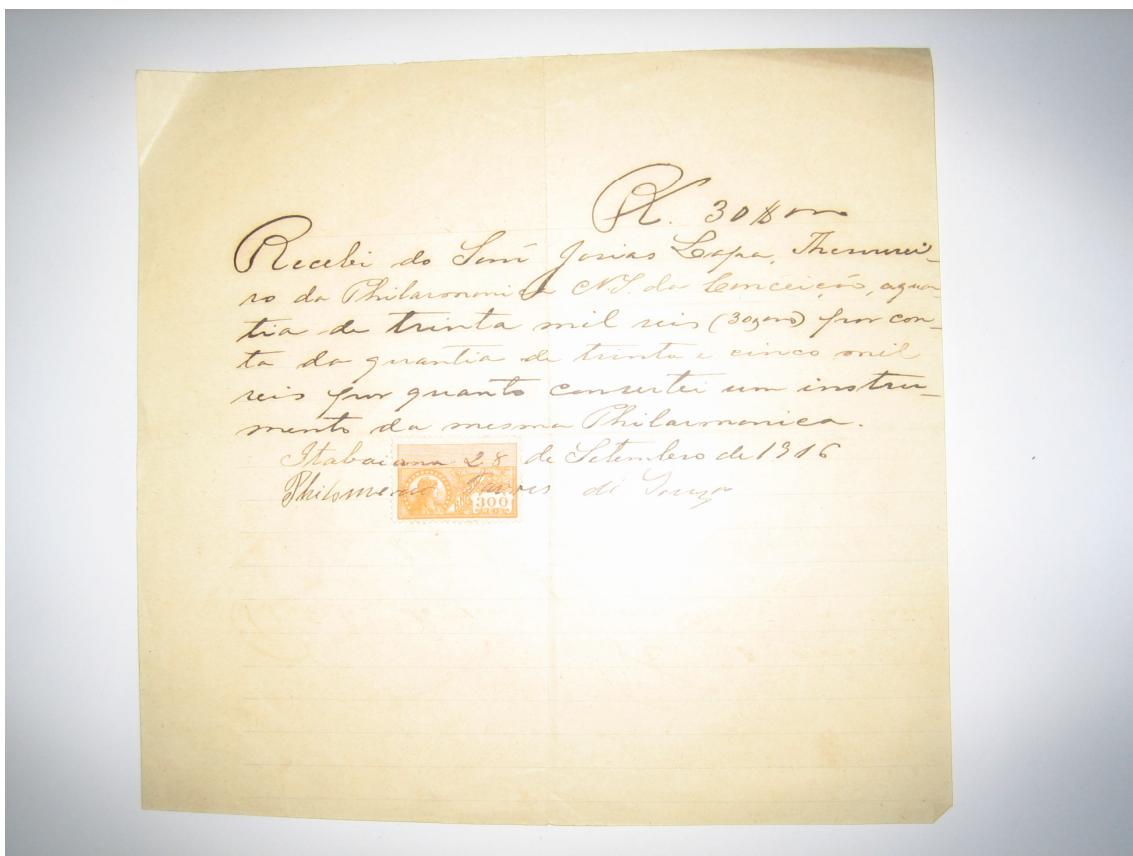 R. 30$000
Recebi do Senr Josias Lapa, Thesourei-
ro da Philarmonica N.S. da Conceição, aquan-
tia de trinta mil reis (30$000) por con-
ta da quantia de trinta e cinco mil
reis por quanto consertei um instru-
mento da mesma Philarmonica.
Itabaiana 28 de Setembro de 1916
Philomeno Tavares de Souza
300
REIS